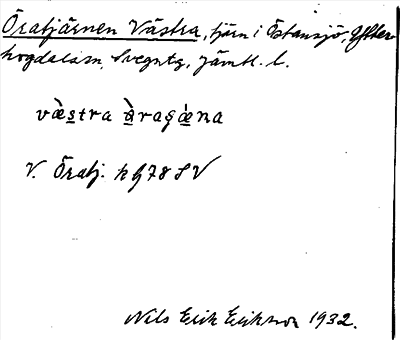 Öratjärnen Västra, tjärn i Östansjö, Ytter-
hogdals sn, Svegs tg, Jämtl. l.
væ̀stra àragæ̀na
V. Öratj. k G78 SV
Nils Erik Erikson 1932.